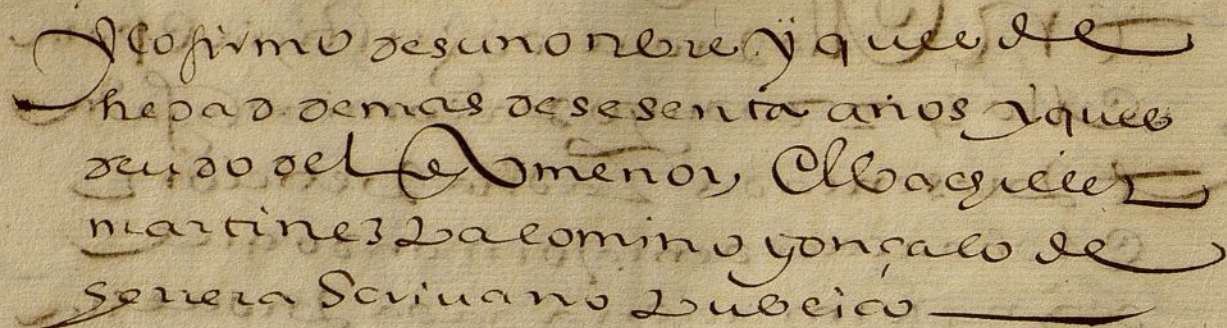 y lo firmo de su nonbre y que es de
hedad de mas de sesenta años y ques
deudo del menor, El bachiller
martinez palomino gonçalo de
herrera Scrivano publico